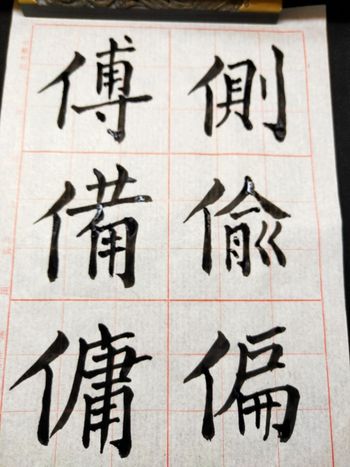 側偷偏
傅備傭